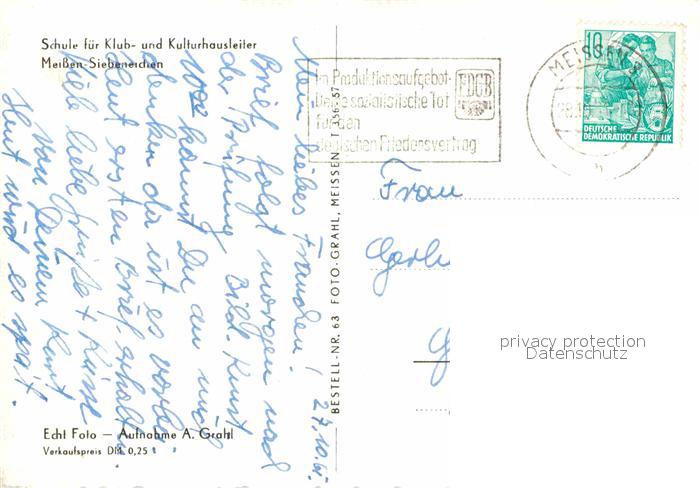 Schule für Klub- und Kulturhausleiter
Meißen-Siebeneichen
Mein liebes Frauchen!
Brief folgt morgen nach
der Prüfung Bild. Kunst
kannst Du an mich
denken da ist es vorbei.
Heut ersten Brief erhalten
Viele liebe Grüße + Küsse
von Deinem Kurt
Heut wird es spät.
27.10.61
Echt Foto — Aufnahme A. Grahl
Verkaufspreis DM 0,25
BESTELL-NR. 63 FOTO-GRAHL, MEISSEN 356 57
Im Produktionsaufgebot-
Deine sozialistische Tat
für den
deutschen Friedensvertrag
FDGB
MEISSEN
10
DEUTSCHE
DEMOKRATISCHE REPUBLIK
Frau
Gerh
G
privacy protection
Datenschutz